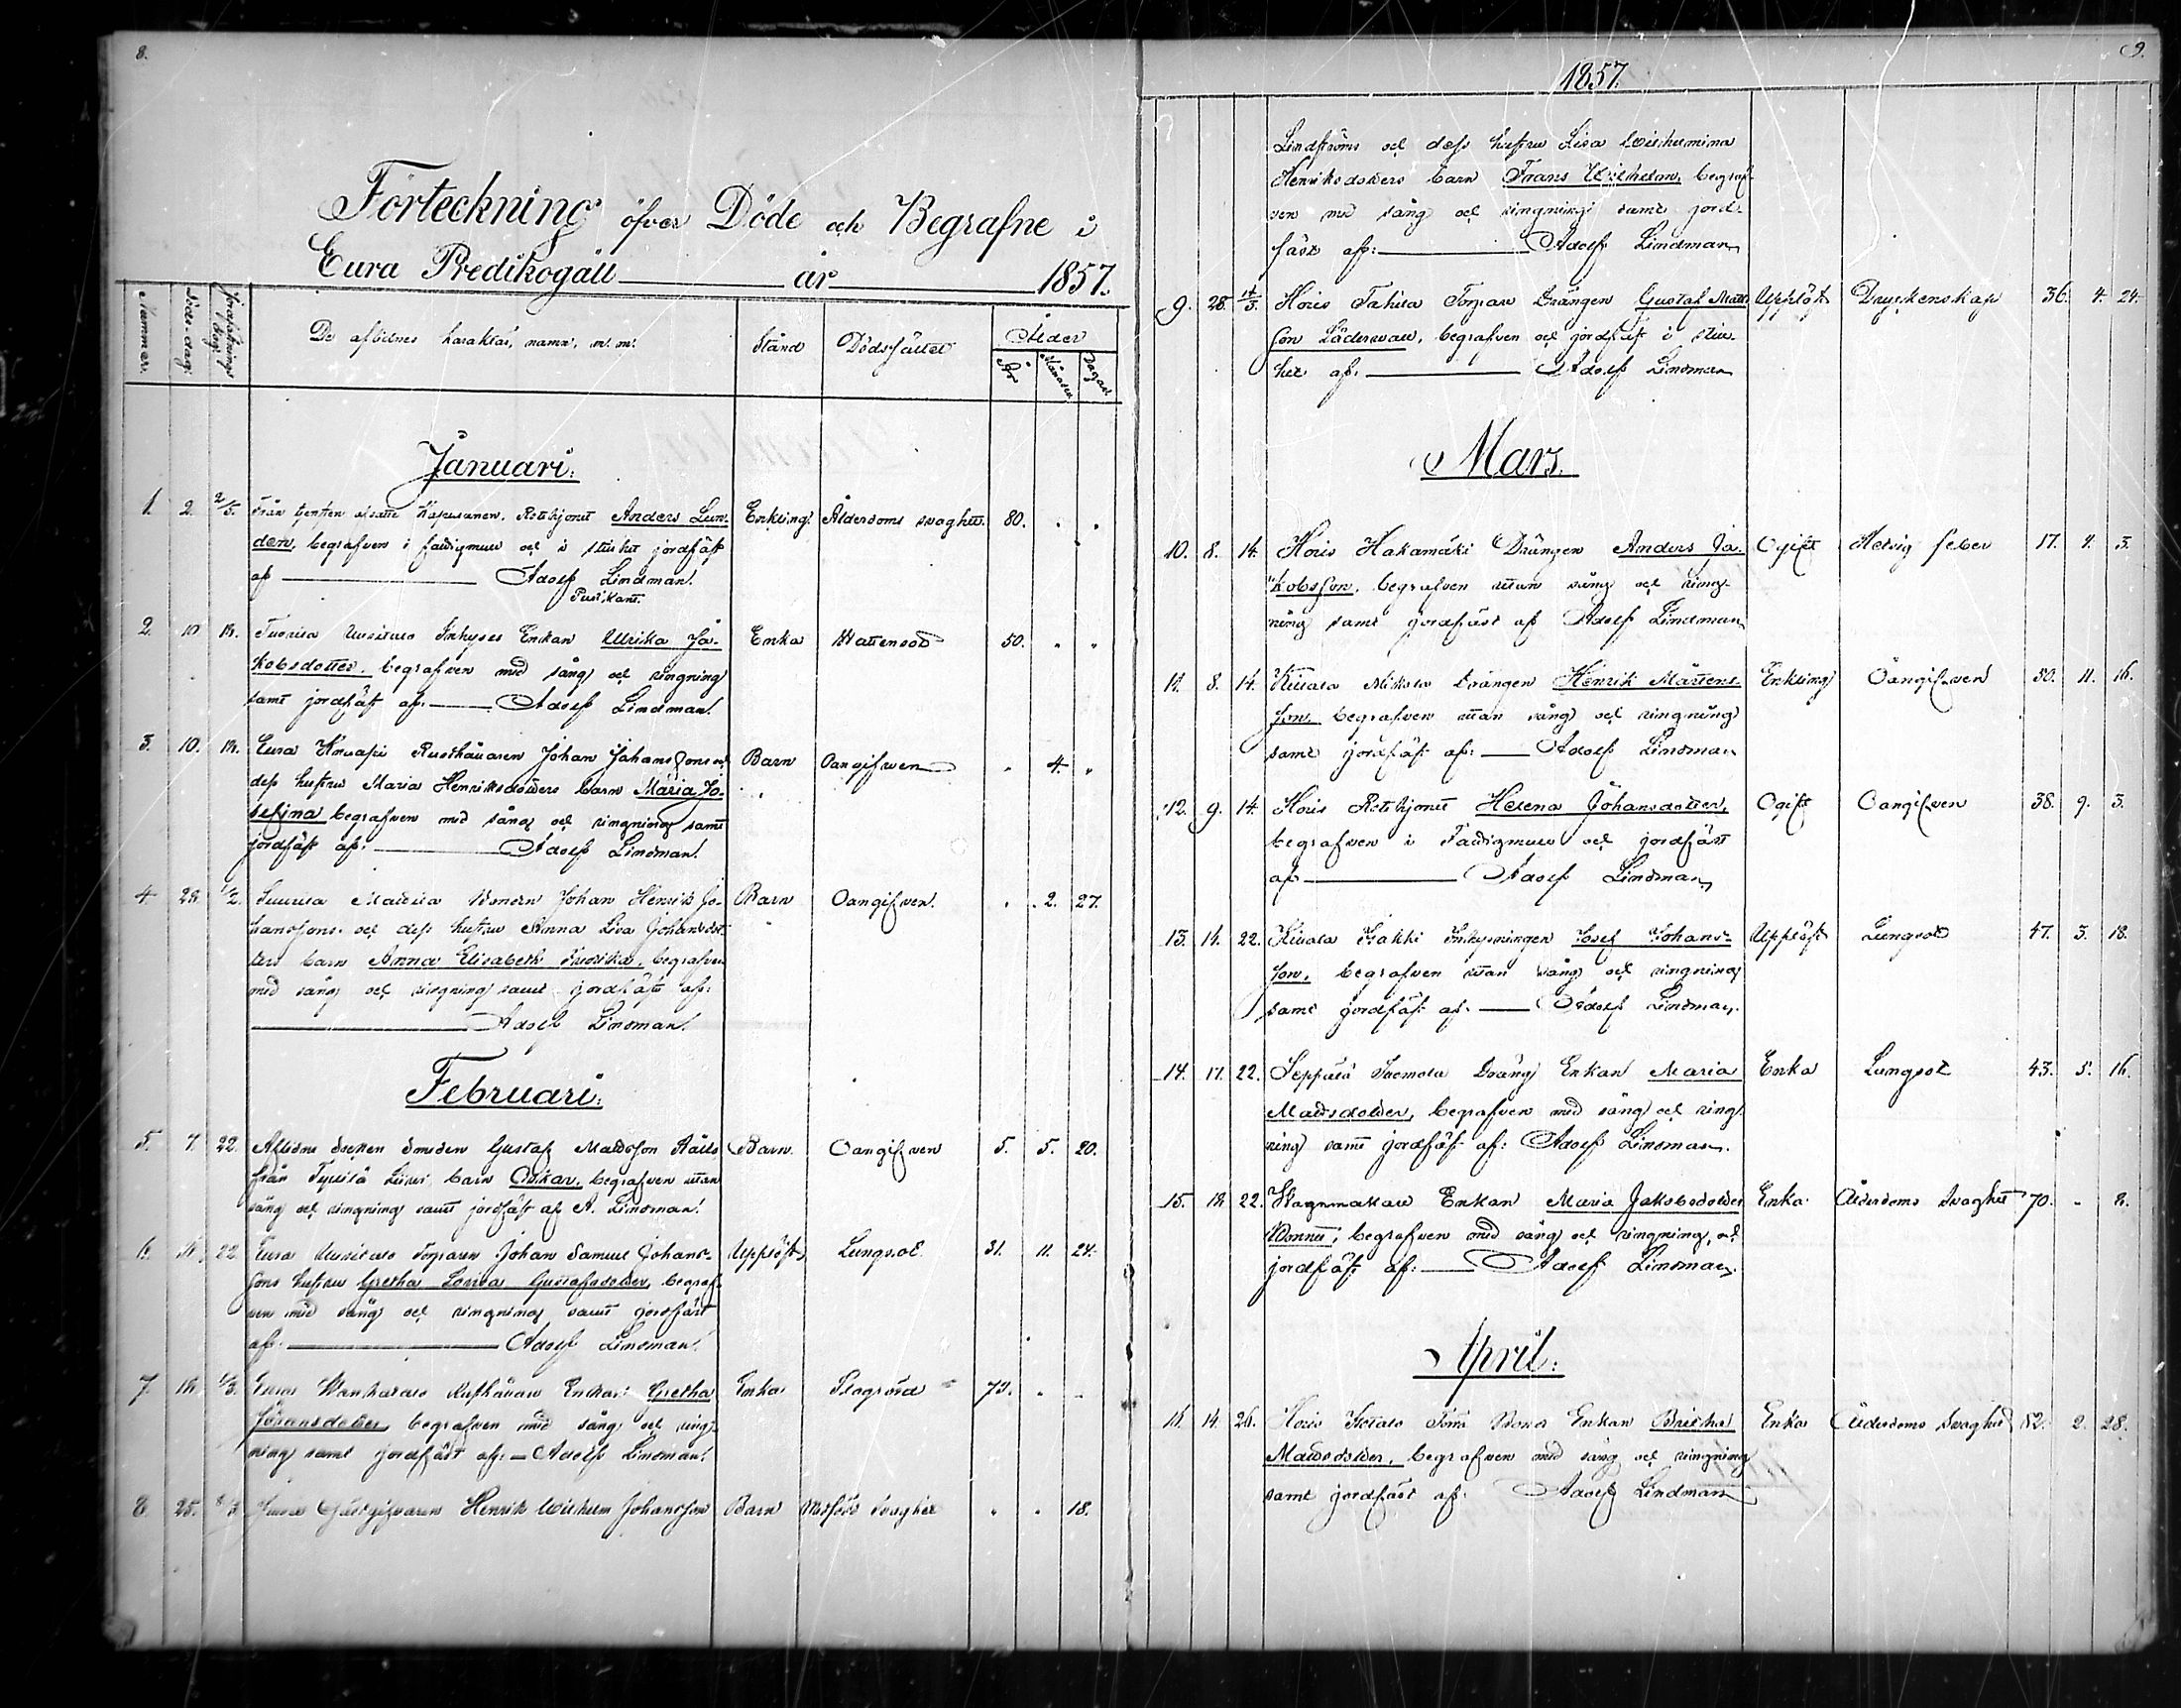 8.
Förteckning öfver Döde och Begrafne i
Eura Predikogäll år 1857.
Nummer. Döds-dag. Begrafnings dag. De aflidnes karaktär, namn, m.m. Stånd Dödssättet Ålder
År Månader Dagar
Januari.
1. 2. 2/5. Från Rotehjonet Anders Lun- Enkling. Ålderdoms svaghet. 80. . .
den, begrafven i fattigmull och i stillhet jordfäst
af Adolf Lindman.
Predikant.
2. 10 18. Inhyses Enkan Ulrika Ja- Enka Wattensot 50. " "
kobsdotter. begrafven med sång och ringning
samt jordfäst af: Adolf Lindman.
3. 10. 18. Eura Rusthållaren Johan Johanssons och Barn Oangifven . 4. "
dess hustru Maria Henriksdotters barn Maria Jo-
sefina begrafven med sång och ringning samt
jordfäst af: Adolf Lindman.
4 28. 1/2. Bonden Johan Henrik Jo- Barn Oangifven. . 2. 27.
hanssons och dess hustru Anna Lisa Johansdot-
ters barn Anna Elisabeth Fredrika, begrafven
med sång och ringning samt jordfäst af:
Adolf Lindman.
Februari.
5. 7 22. Aflidne Socken Smeden Gustaf Mattsson Barn. Oangifven 5. 5. 20.
från barn Oskar, begrafven utan
sång och ringning samt jordfäst af A. Lindman.
6. 16 22 Eura Torparen Johan Samuel Johans- Upplöst Lungsot. 31. 11. 24.
sons hustru Gretha Lovisa Gustafsdotter, begraf-
ven med sång och ringning samt jordfäst
af: Adolf Lindman.
7. 16. 1/3. Eura Rusthållare Enkan: Gretha Enka Slagrörd 73. . -
Johansdotter begrafven med sång och ring-
ning samt jordfäst af: Adolf Lindman.
8. 25. 8/3. Eura Gästgifvaren Henrik Wilhelm Johansson Barn Medfödd svaghet . . 18.
9.
1857.
Lindströms och dess hustru Lisa Wilhelmina
Henriksdotters barn Frans Wilhelm, begraf-
ven med sång och ringning samt jord-
fäst af: Adolf Lindman
9. 28. 14/3. Kois Tahila Torpare Drängen Gustaf Matts- Upplöst Dryckenskap 36. 4. 24.
son Söderwall, begrafven och jordfäst i still-
het af. Adolf Lindman
Mars.
10. 8. 14. Kois Hakamäki Drängen Anders Ja- Ogift Hetsig feber 17. 4. 3.
kobsson, begrafven utan sång och ring-
ning samt jordfäst af Adolf Lindman
11. 8. 14. Drängen Henrik Mårtens- Enkling Oangifven 50. 11. 16.
son begrafven utan sång och ringning
samt jordfäst af: Adolf Lindman
12. 9. 14. Kois Rotehjonet Helena Johansdotter, Ogift Oangifven 38. 9. 3.
begrafven i Fattigmull och jordfäst
af Adolf Lindman
13. 14. 22. Inhysningen Josef Johans- Upplöst Lungsot 47. 3. 18.
son, begrafven utan sång och ringning
samt jordfäst af. Adolf Lindman.
14. 17. 22. Dräng Enkan Maria Enka Lungsot 43. 5. 16.
Mattsdotter, begrafven med sång och ring-
ning samt jordfäst af: Adolf Lindman.
15. 18 22. Wagnmakare Enkan Maria Jakobsdotter Enka Ålderdoms Svaghet 70. - 8.
begrafven med sång och ringning, och
jordfäst af: Adolf Lindman.
April.
16. 14. 26. Kois Enkan Britha Enka Ålderdoms Svaghet 82. 2. 28.
Mattsdotter, begrafven med sång och ringning
samt jordfäst af. Adolf Lindman